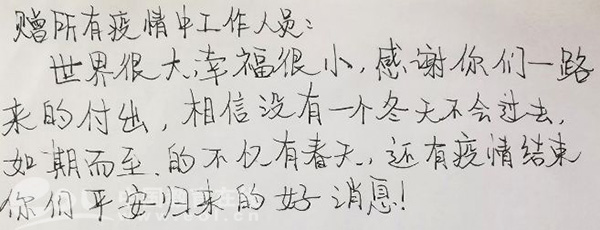 赠所有疫情中工作人员：
世界很大，幸福很小，感谢你们一路
来的付出，相信没有一个冬天不会过去，
如期而至.的不仅有春天，还有疫情结束
你们平安归来的好消息！